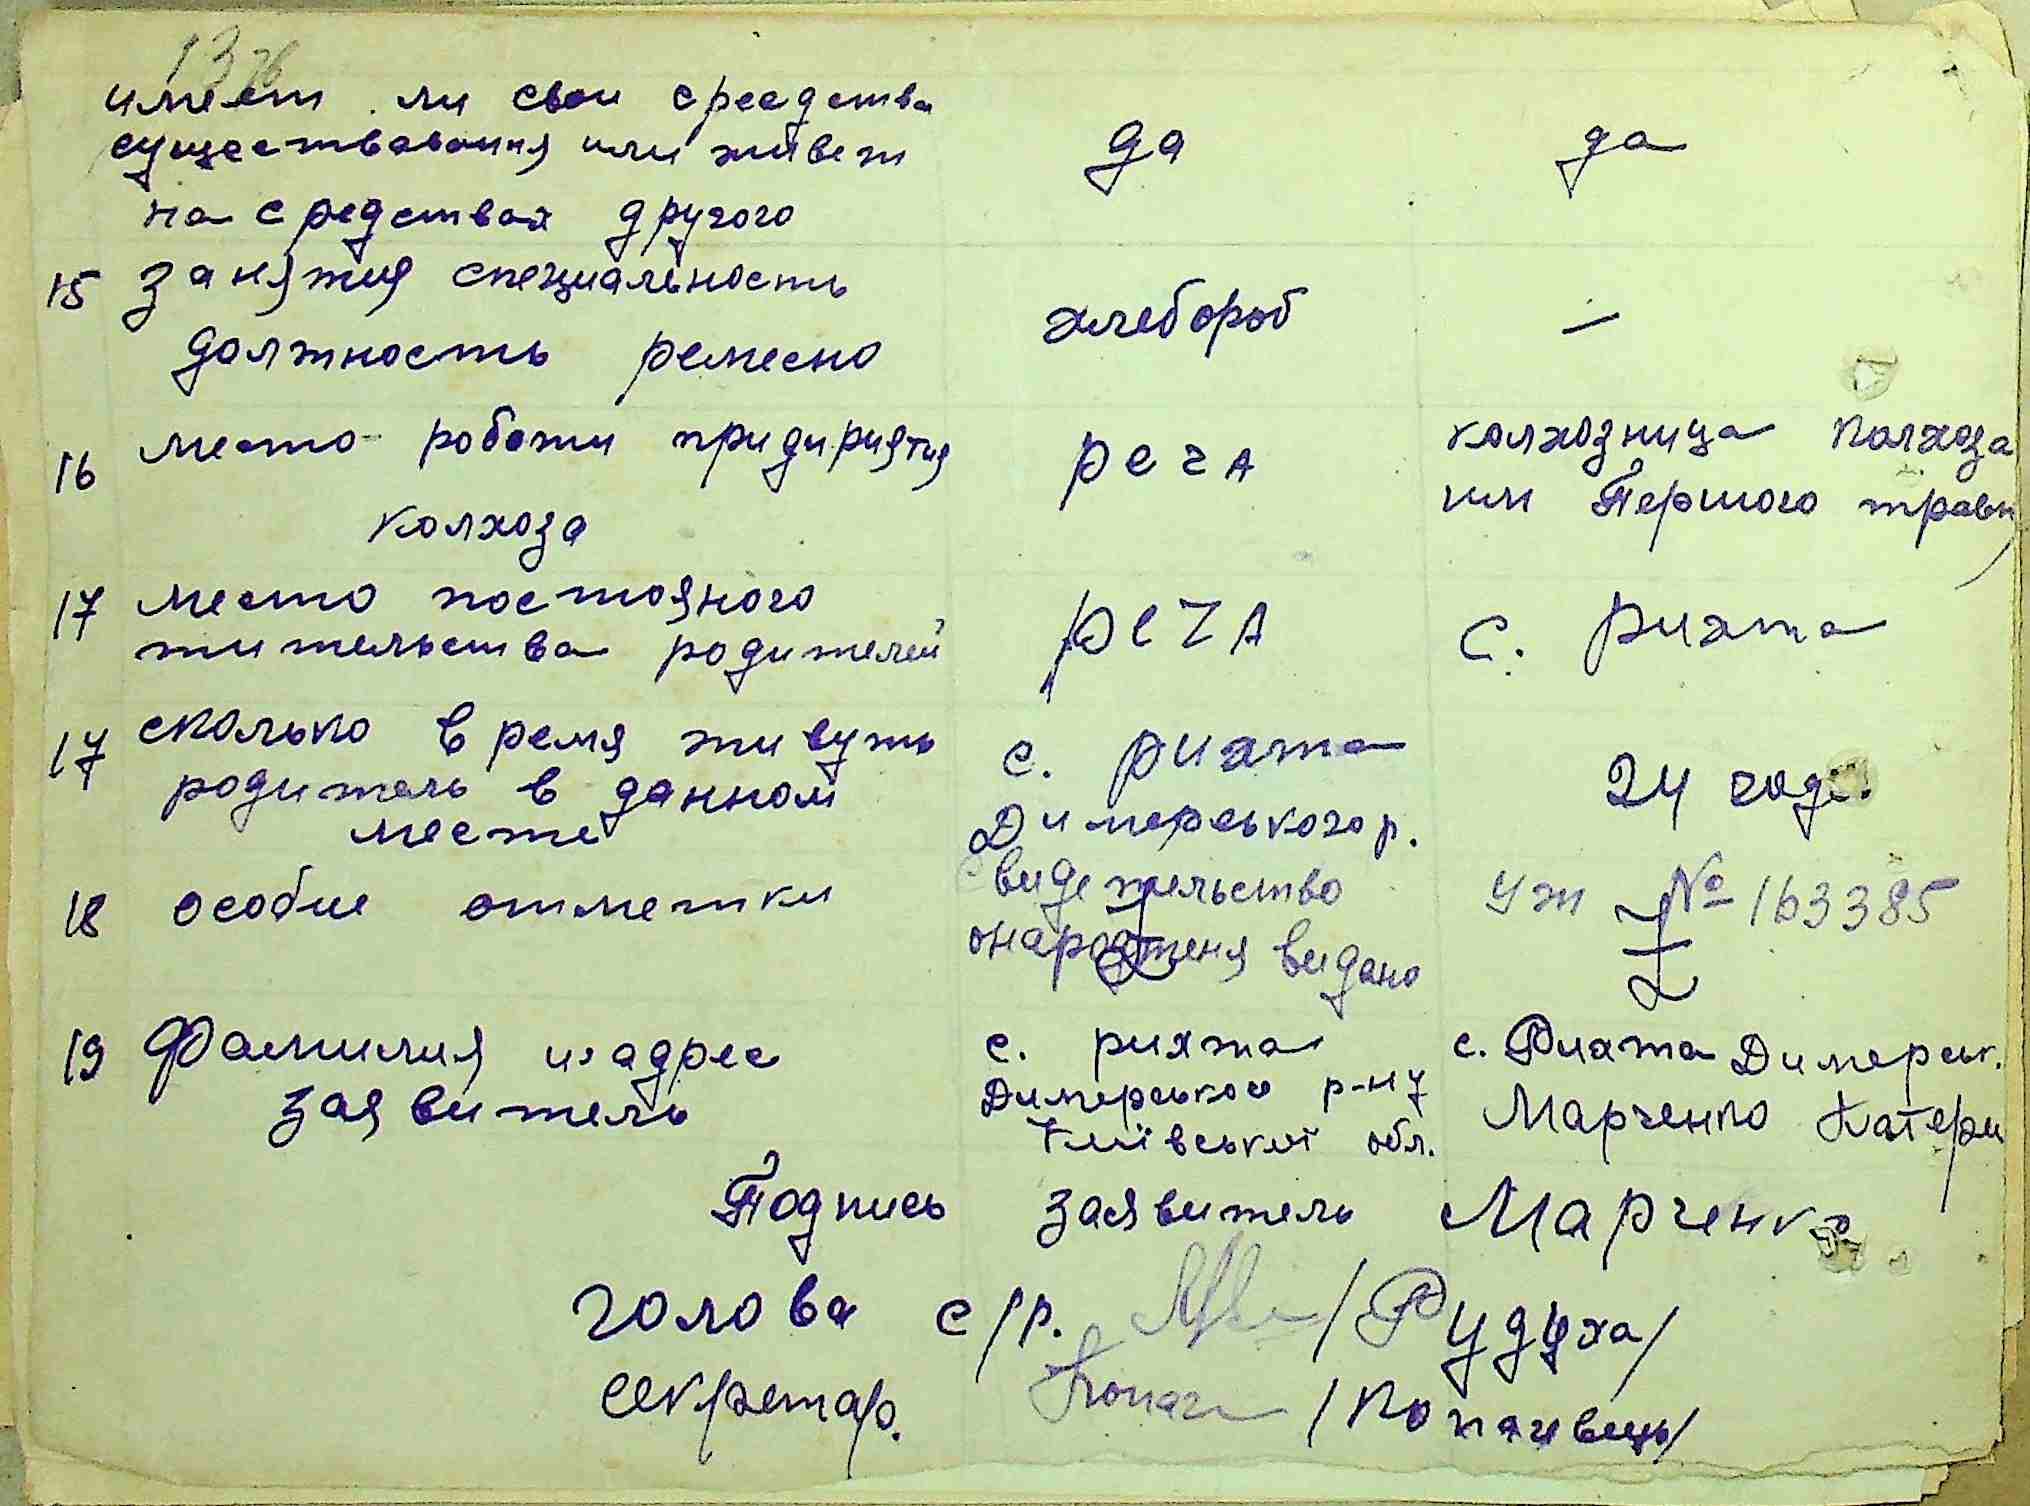 13 зв
имеет ли свои средства
существавания или живет
на средствах другого
да
да
15 занятия специальность
должность ремесно
хлебороб
—
16 место роботи придприятия
колхоза
РСЧА
колхозница колхоза
им Першого травн
17 место постояного
жительства родителей
РСЧА
с. Рихта
17 сколько время живуть
родитель в данном
месте
с. рихта
Димерського р.
24 года
18 особие отметки
видетельство
онародженя видано
УЖ № 163385
19 Фамилия и адрес
заявитель
с. рихта
Димерського р-ну
Київської обл.
с. Рихта Димерськ.
Марченко Катери
Подпись заявитель Марченко
голова с/р. /Рудуха/
секретар. Копач /Копачивець/